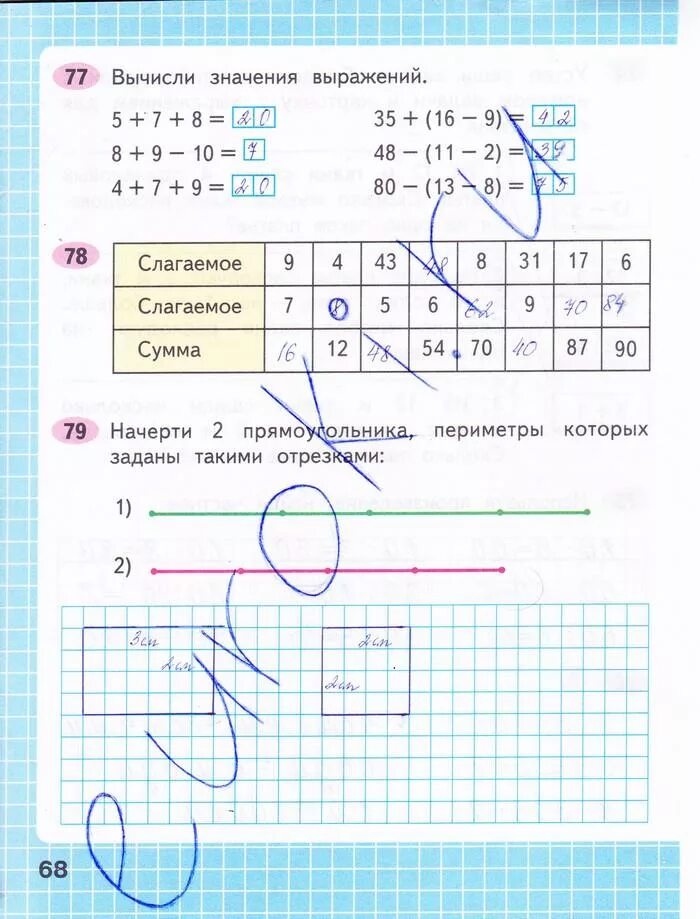 77 Вычисли значения выражений.
5 + 7 + 8 = 20 35 + (16 − 9) = 42
8 + 9 − 10 = 7 48 − (11 − 2) = 39
4 + 7 + 9 = 20 80 − (13 − 8) = 75
78 Слагаемое 9 4 43 48 8 31 17 6
Слагаемое 7 8 5 6 62 9 70 84
Сумма 16 12 48 54 70 40 87 90
79 Начерти 2 прямоугольника, периметры которых
заданы такими отрезками:
1)
2)
3см 2см
2см 2см
68